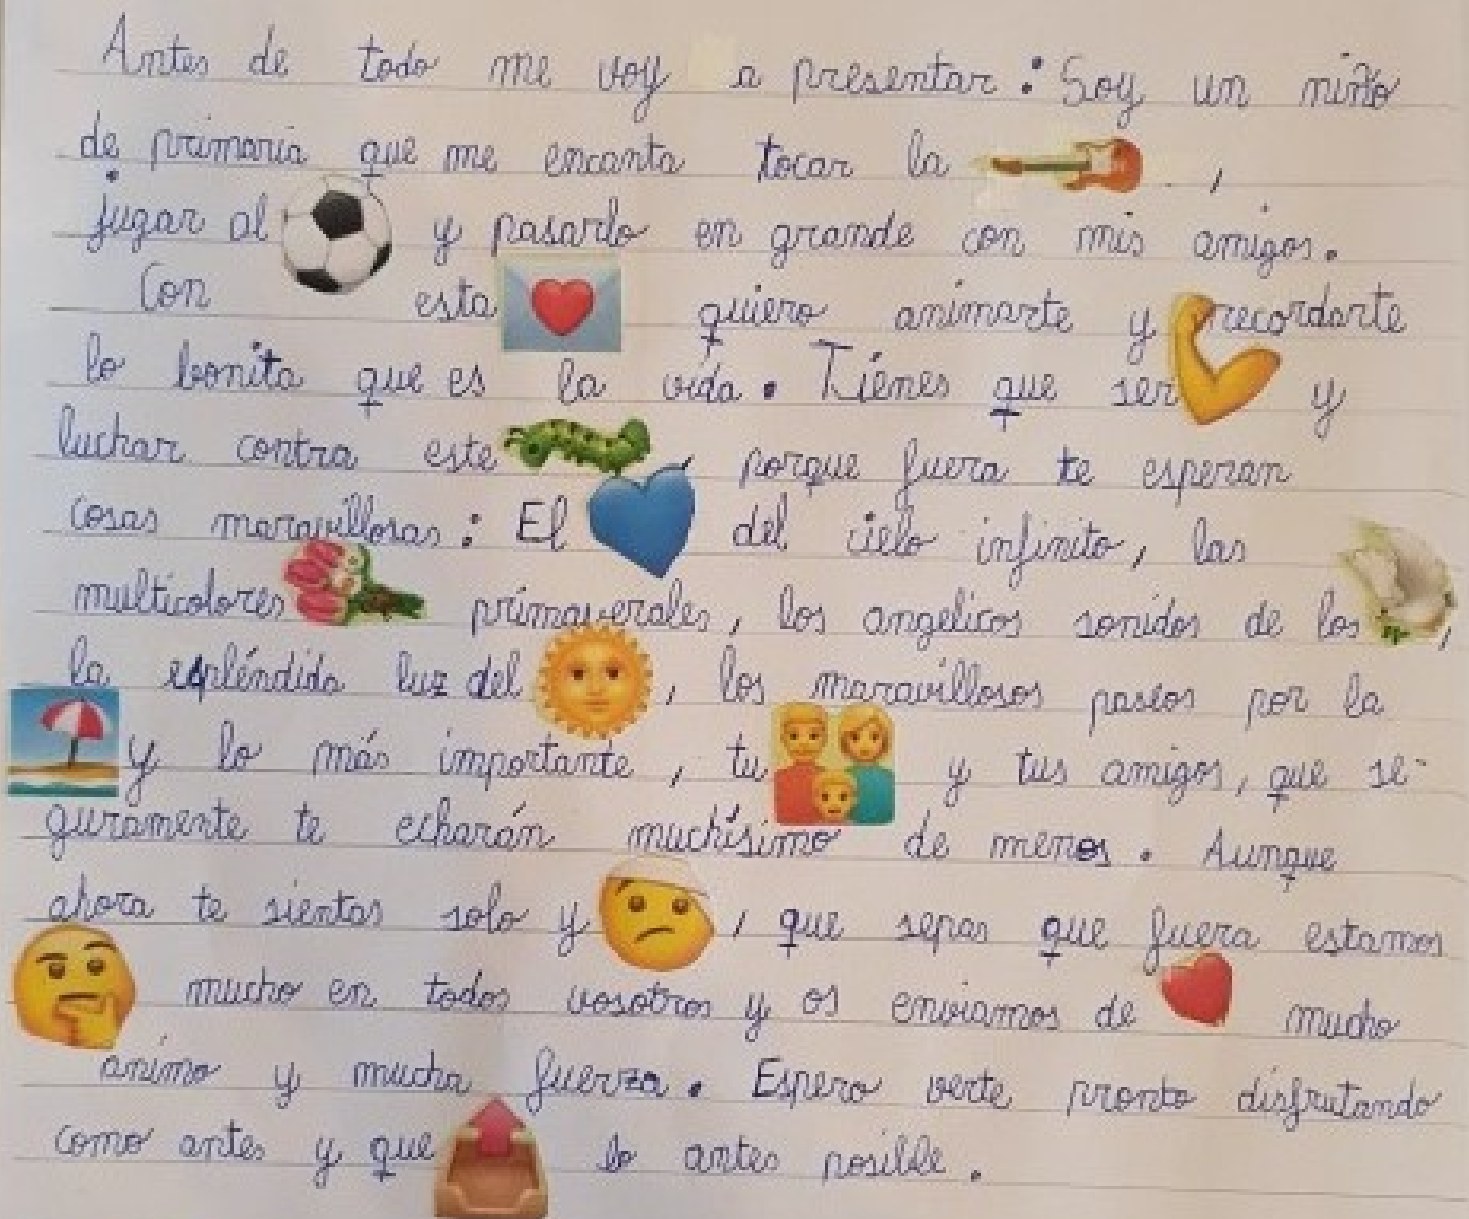 Antes de todo me voy a presentar: Soy un niño
de primaria que me encanta tocar la ,
jugar al y pasarlo en grande con mis amigos.
Con esta quiero animarte y recordarte
lo bonita que es la vida. Tienes que ser y
luchar contra este , porque fuera te esperan
cosas maravillosas: El del cielo infinito, las
multicolores primaverales, los angelicos sonidos de los ,
la espléndida luz del , los maravillosos paseos por la
y lo más importante, tu y tus amigos, que se-
guramente te echarán muchísimo de menos. Aunque
ahora te sientas solo y , que sepas que fuera estamos
mucho en todos vosotros y os enviamos de mucho
animo y mucha fuerza. Espero verte pronto disfrutando
como antes y que lo antes posible.